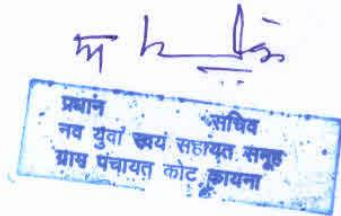 प्रधान सचिव
नव युवा स्वयं सहायत समूह
ग्राम पंचायत कोट कायना